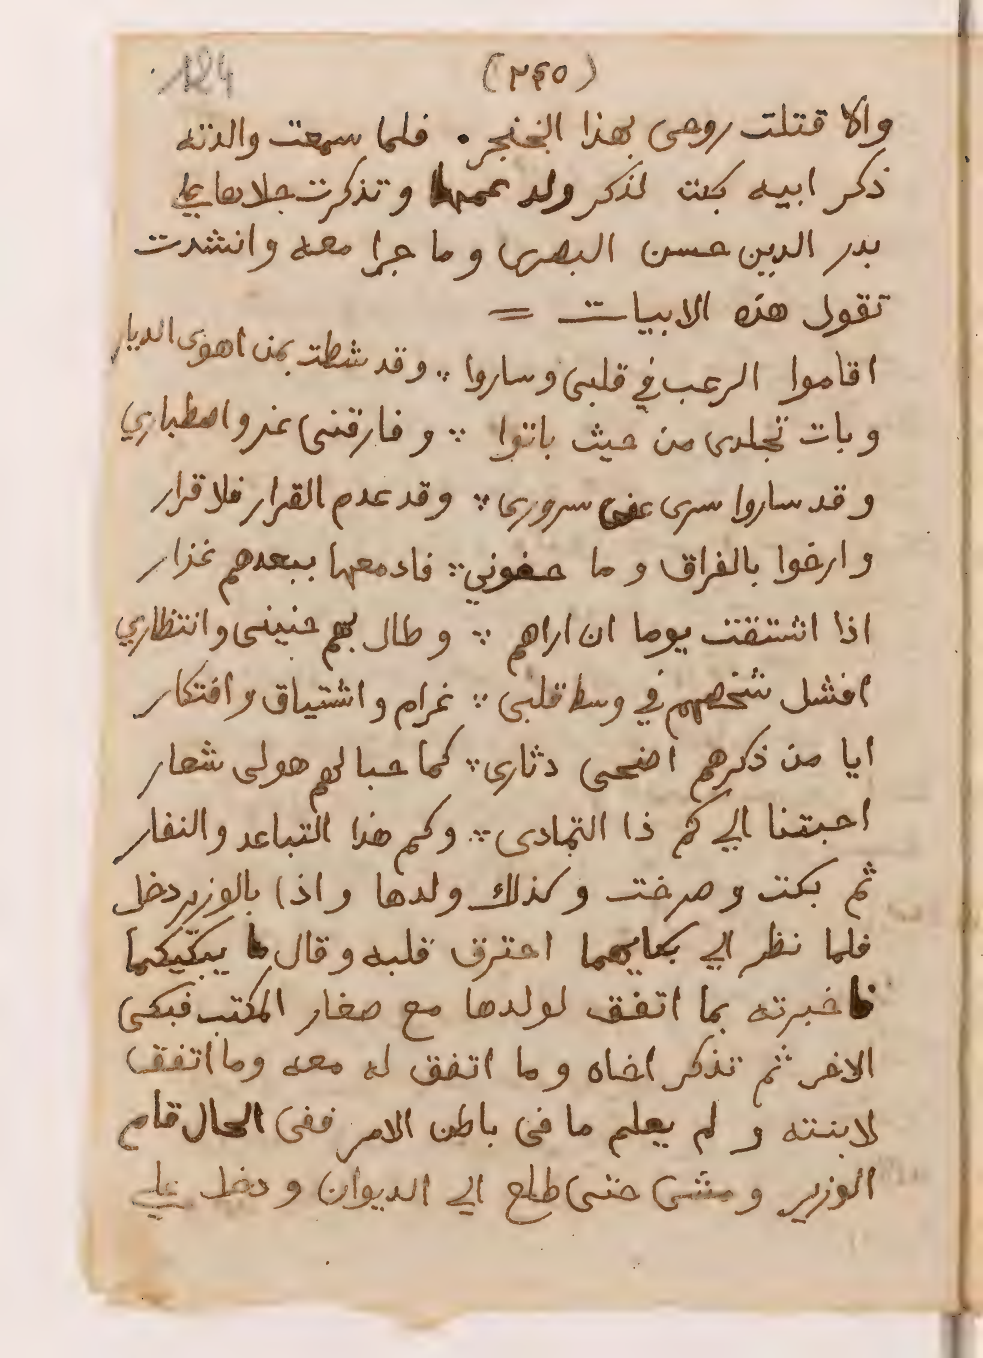 (٢٤٥) 124
والا قتلت روحى بهذا الخنجر . فلما سمعت والدته
ذكر ابيه بكت لذكر ولد عمها وتذكرت جلاها على
بدر الدين حسن البصرى وما جرا معه وانشدت
تقول هذه الابيات =
اقاموا الرعب في قلبى وساروا ∴ وقد شطت بمن اهوى الديار
وبات تجلدى من حيث باتوا ∴ وفارقنى عذر واصطباري
وقد ساروا سرى عنى سرورى ∴ وقد عدم القرار فلا قرار
وارخوا بالفراق وما جفوني ∴ فادمعها ببعدهم غذار
اذا اشتقت يوما ان اراهم ∴ وطال بهم حنينى وانتظاري
افشل شخصهم في وسط قلبى ∴ غرام واشتياق وافتكار
ايا من ذكرهم اضحى دثارى ∴ كما حبا لهم هولى شعار
احبتنا الي كم ذا التمادى ∴ وكم هذا التباعد والنفار
ثم بكت وصرخت وكذلك ولدها واذا بالوزير دخل
فلما نظر الي بكايهما احترق قلبه وقال ما يبكيكما
فاخبرته بما اتفق لولدها مع صغار المكتب فبكى
الاخر ثم تذكر اخاه وما اتفق له معه وما اتفق
لابنته ولم يعلم ما فى باطن الامر ففى الحال قام
الوزير ومشى حتى طلع الي الديوان ودخل علي